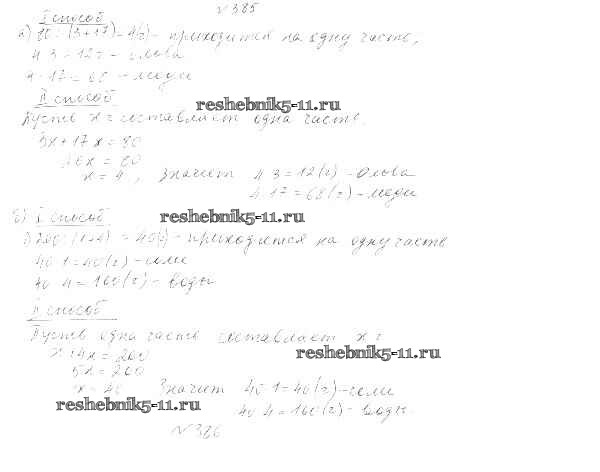 №385
I способ
а) 80 : (3+17) = 4(г) - приходится на одну часть.
4·3 = 12г - олова
4·17 = 68 - меди
II способ
reshebnik5-11.ru
Пусть x г составляет одна часть.
3x + 17x = 80
20x = 80
x = 4, Значит 4·3 = 12(г) - олова
4·17 = 68(г) - меди
б) I способ
reshebnik5-11.ru
1) 200 : (1+4) = 40(г) - приходится на одну часть
40·1 = 40(г) - соли
40·4 = 160(г) - воды
II способ
Пусть одна часть составляет x г
x + 4x = 200
reshebnik5-11.ru
5x = 200
x = 40 Значит 40·1 = 40(г) - соли
reshebnik5-11.ru
40·4 = 160(г) - воды.
№386